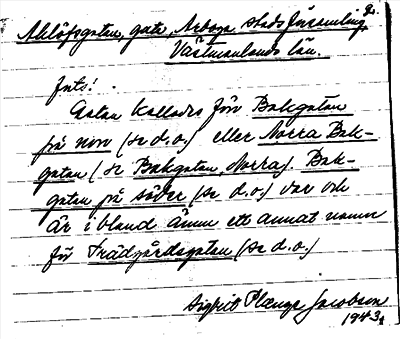 Ahllöfsgatan, gata, Arboga stadsförsamling,
Västmanlands län.
Juts!
Gatan kallades förr Bakgatan
på norr (se d.o.) eller Norra Bak-
gatan (se Bakgatan, Norra). Bak-
gatan på söder (se d.o.) var och
är ibland ännu ett annat namn
för Trädgårdsgatan (se d.o.)
Sigfrid Plænge Jacobson
1943.